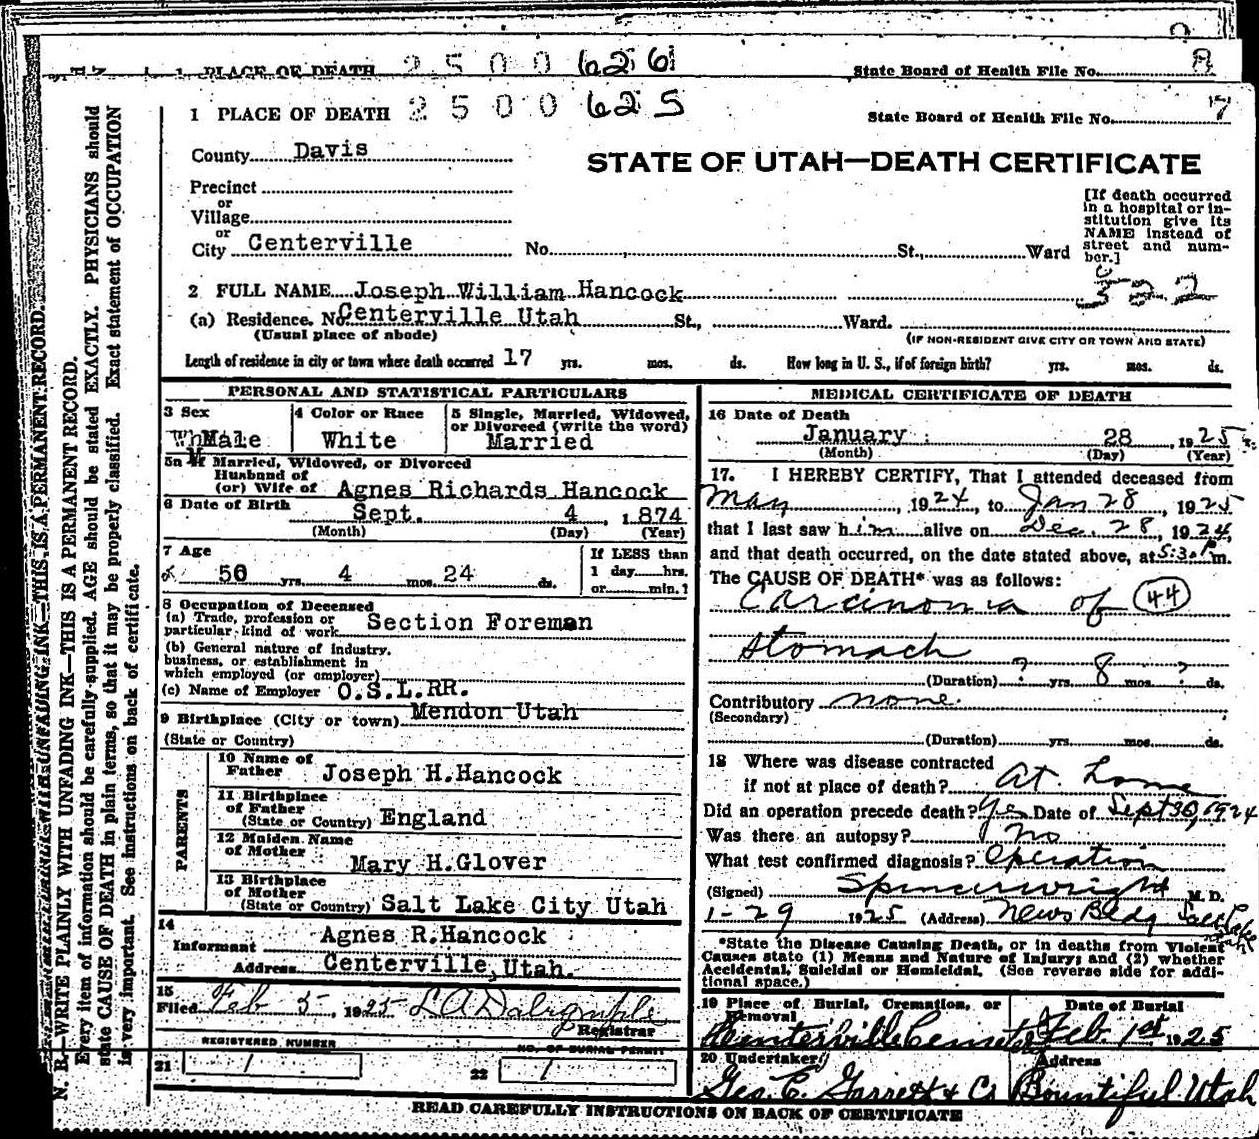 1 PLACE OF DEATH 2 5 0 0 626 State Board of Health File No. 8
1 PLACE OF DEATH 2 5 0 0 625 State Board of Health File No. 7
County Davis
STATE OF UTAH—DEATH CERTIFICATE
Precinct
or
Village
or
City Centerville No. St., Ward
[If death occurred
in a hospital or in-
stitution give its
NAME instead of
street and num-
ber.]
522
2 FULL NAME Joseph William Hancock
(a) Residence. No. Centerville Utah St., Ward.
(Usual place of abode) (IF NON-RESIDENT GIVE CITY OR TOWN AND STATE)
Length of residence in city or town where death occurred 17 yrs. mos. ds. How long in U. S., if of foreign birth? yrs. mos. ds.
PERSONAL AND STATISTICAL PARTICULARS
3 Sex 4 Color or Race 5 Single, Married, Widowed,
or Divorced (write the word)
WhMale White Married
5a If Married, Widowed, or Divorced
Husband of
(or) Wife of Agnes Richards Hancock
6 Date of Birth Sept. 4, 1874
(Month) (Day) (Year)
7 Age If LESS than
50 yrs. 4 mos. 24 ds. 1 day hrs.
or min.?
8 Occupation of Deceased
(a) Trade, profession or
particular kind of work Section Foreman
(b) General nature of industry,
business, or establishment in
which employed (or employer)
(c) Name of Employer O.S.L.RR.
9 Birthplace (City or town) Mendon Utah
(State or Country)
PARENTS
10 Name of
Father Joseph H.Hancock
11 Birthplace
of Father
(State or Country) England
12 Maiden Name
of Mother Mary H.Glover
13 Birthplace
of Mother
(State or Country) Salt Lake City Utah
14
Informant Agnes R.Hancock
Address Centerville,Utah.
15
Filed Feb 5, 1925 L A Dalrymple
Registrar
REGISTERED NUMBER NO. OF BURIAL PERMIT
21 1 22 1
MEDICAL CERTIFICATE OF DEATH
16 Date of Death
January 28, 1925
(Month) (Day) (Year)
17. I HEREBY CERTIFY, That I attended deceased from
May, 1924, to Jan 28, 1925
that I last saw him alive on Dec. 28, 1924,
and that death occurred, on the date stated above, at 5:30 P m.
The CAUSE OF DEATH* was as follows:
Carcinoma of 44
Stomach
(Duration) ? yrs. 8 mos. ? ds.
Contributory none.
(Secondary)
(Duration) yrs. mos. ds.
18 Where was disease contracted
if not at place of death? At home
Did an operation precede death? Yes Date of Sept 30, 1924
Was there an autopsy? No
What test confirmed diagnosis? Operation
(Signed) Spencer Wright M. D.
1-29 1925 (Address) News Bldg Salt Lake
*State the Disease Causing Death, or in deaths from Violent
Causes state (1) Means and Nature of Injury; and (2) whether
Accidental, Suicidal or Homicidal. (See reverse side for addi-
tional space.)
19 Place of Burial, Cremation, or Date of Burial
Removal
Centerville Cemetery Feb. 1st 1925
20 Undertaker Address
Geo. C. Garrett & Co Bountiful Utah
READ CAREFULLY INSTRUCTIONS ON BACK OF CERTIFICATE
N. B.—WRITE PLAINLY WITH UNFADING INK—THIS IS A PERMANENT RECORD.
Every item of information should be carefully supplied. AGE should be stated EXACTLY. PHYSICIANS should
state CAUSE OF DEATH in plain terms, so that it may be properly classified. Exact statement of OCCUPATION
is very important. See instructions on back of certificate.